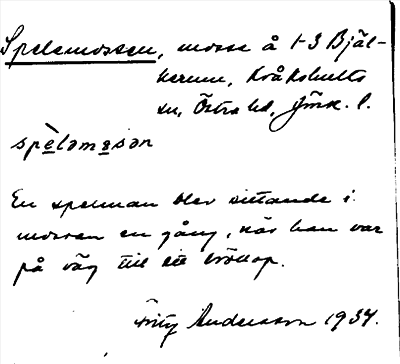 Spelemossen, mosse å 1-3 Bjäl-
kerum, Kråkshults
sn, Östra hd, Jönk. l.
spèləmåsən
En spelman blev sittande i
mossen en gång, när han var
på väg till ett bröllop.
Fritz Andersson 1934.